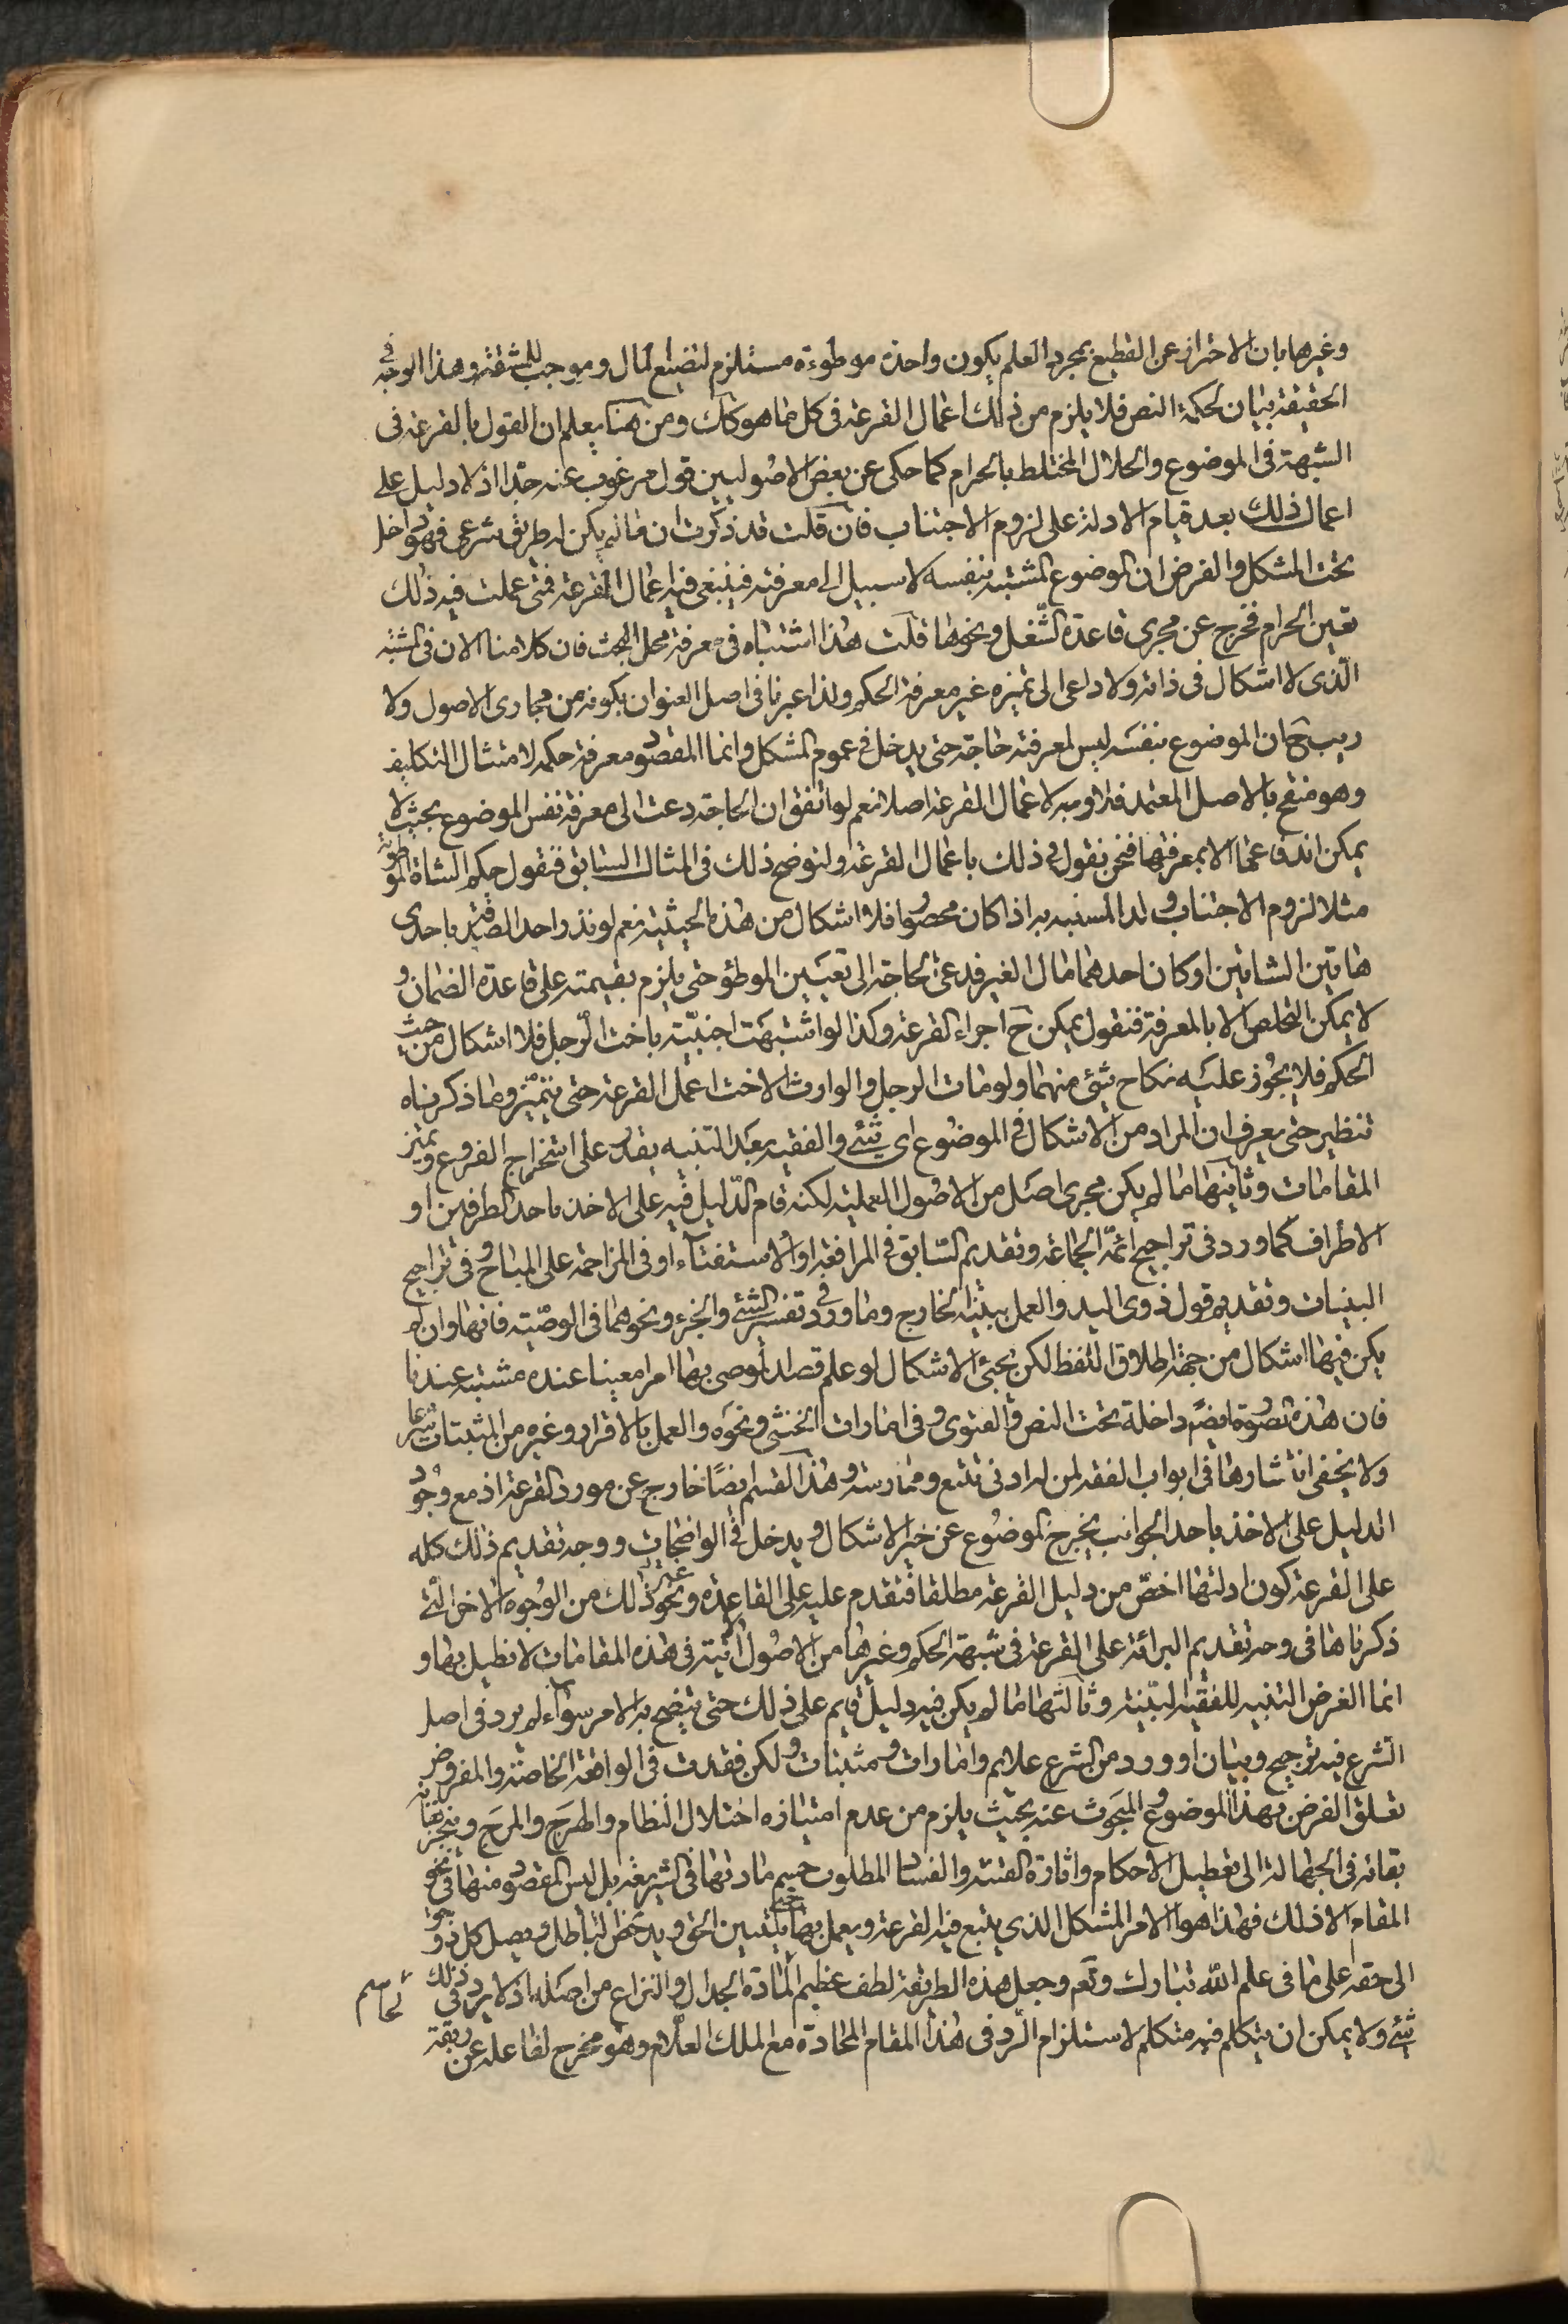 وغيرها بان الاحتراز عن القطيع بمجرد العلم بكون واحدة موطوءة مستلزم لتضييع المال وموجب للمشقة وهذا الوجه في
الحقيقة بيان لحكمة النص فلا يلزم من ذلك اعمال القرعة في كل ما هو كك ومن هنا يعلم ان القول بالقرعة في
الشبهة في الموضوع والحلال المختلط بالحرام كما حكى عن بعض الاصوليين قول مرغوب عنه جدا اذ لا دليل على
اعمال ذلك بعد قيام الادلة على لزوم الاجتناب فان قلت قد ذكرت ان ما لم يكن له طريق شرعي فهو داخل
تحت المشكل والفرض ان الموضوع المشتبه بنفسه لا سبيل الى معرفته فينبغي فيه اعمال القرعة فمتى عملت فيه ذلك
تعين الحرام فخرج عن مجرى قاعدة الشغل ونحوها قلت هذا اشتباه في معرفة محل البحث فان كلامنا الان في المشتبه
الذي لا اشكال في ذاته ولا داعي الى تميزه غير معرفة الحكم ولذا عبرنا في اصل العنوان بكونه من مجاري الاصول ولا
ريب ح ان الموضوع بنفسه ليس لمعرفته حاجة حتى يدخل في عموم المشكل وانما المقصود معرفة حكمه لامتثال التكليف
وهو منقح بالاصل المعتمد فلا وجه لاعمال القرعة اصلا نعم لو اتفق ان الحاجة دعت الى معرفة نفس الموضوع بحيث لا
يمكن اندفاعها الا بمعرفتها فنحن نقول في ذلك باعمال القرعة ولنوضح ذلك في المثال السابق فنقول حكم الشاة الموطوئة
مثلا لزوم الاجتناب ولدا المشتبه به اذا كان محصورا فلا اشكال من هذه الحيثية نعم لو نذر واحد التصدق باحدى
هاتين الشاتين او كان احدهما مال الغير فدعى الحاجة الى تعيين الموطؤ حتى يلزم بقيمته على قاعدة الضمان و
لا يمكن التخلص الا بالمعرفة فنقول يمكن ح اجراء القرعة وكذا لو اشتبهت اجنبية باخت الرجل فلا اشكال من حيث
الحكم فلا يجوز عليه نكاح شئ منهما ولو مات الرجل والوارث الاخت اعمل القرعة حتى يتميز وما ذكرناه
تنظير حتى يعرف ان المراد من الاشكال في الموضوع اي شئ والفقيه بعد التنبيه يقدر على استخراج الفروع ويميز
المقامات وثانيها ما لم يكن مجرى اصل من الاصول العملية لكنه قام الدليل فيه على الاخذ باحد الطرفين او
الاطراف كما ورد في تراجيح ائمة الجماعة وتقديم السابق في المرافعة او الاستفتاء او في المزاحمة على المباح وفي تراجيح
البينات وتقديم قول ذوي اليد والعمل ببينة الخارج وما ورد في تفسير الشئ والجزء ونحوهما في الوصية فانها وان لم
يكن فيها اشكال من جهة اطلاق اللفظ لكن يجئ الاشكال لو علم قصد الموصى بها امرا معينا عنده مشتبه عندنا
فان هذه الصورة ايضا داخلة تحت النص والفتوى وفي امارات الخنثى ونحوه والعمل بالاقرار وغيره من المثبتات شرعا
ولا يخفى انتشارها في ابواب الفقه لمن له ادنى تتبع وممارسة وهذا القسم ايضا خارج عن مورد القرعة اذ مع وجود
الدليل على الاخذ باحد الجوانب يخرج الموضوع عن حيز الاشكال ويدخل في الواضحات ووجه تقديم ذلك كله
على القرعة كون ادلتها اخص من دليل القرعة مطلقا فتقدم عليه على القاعدة ونحو غير ذلك من الوجوه الاخر التي
ذكرناها في وجه تقديم البرائة على القرعة في شبهة الحكم وغيرها من الاصول اتية في هذه المقامات لا نطيل بها و
انما الغرض التنبيه للفقيه النبيه وثالثها ما لم يكن فيه دليل قايم على ذلك حتى يتضح به الامر سواء لم يرد في اصل
الشرع فيه ترجيح وبيان او ورد من الشرع علايم وامارات ومثبتات ولكن فقدت في الواقعة الخاصة والمفروض
تعلق الغرض بهذا الموضوع المبحوث عنه بحيث يلزم من عدم امتيازه اختلال النظام والهرج والمرج وينجر بنا
بقائه في الجهالة الى تعطيل الاحكام واثارة الفتنة والفساد المطلوب حسم مادتها في الشريعة بل ليس المقصود منها في نحو
المقام الا ذلك فهذا هو الامر المشكل الذي يتبع فيه القرعة ويعمل بها حتى يتبين الحق ويدحض الباطل ويصل كل ذي حق
الى حقه على ما في علم الله تبارك وتعم وجعل هذه الطريقة لطف عظيم لمادة الجدال والنزاع من اصله اذ لا يرد في ذلك
حاسم
شئ ولا يمكن ان يتكلم فيه متكلم لاستلزام الرد في هذا المقام المحادة مع الملك العلام وهو مخرج لفاعله عن ربقة